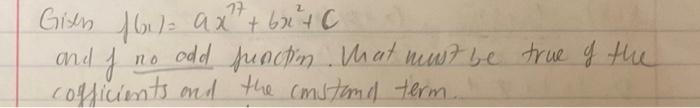 Given f(x) = ax⁷⁷ + bx² + C
and f no odd function. What must be true of the
cofficients and the constand term.